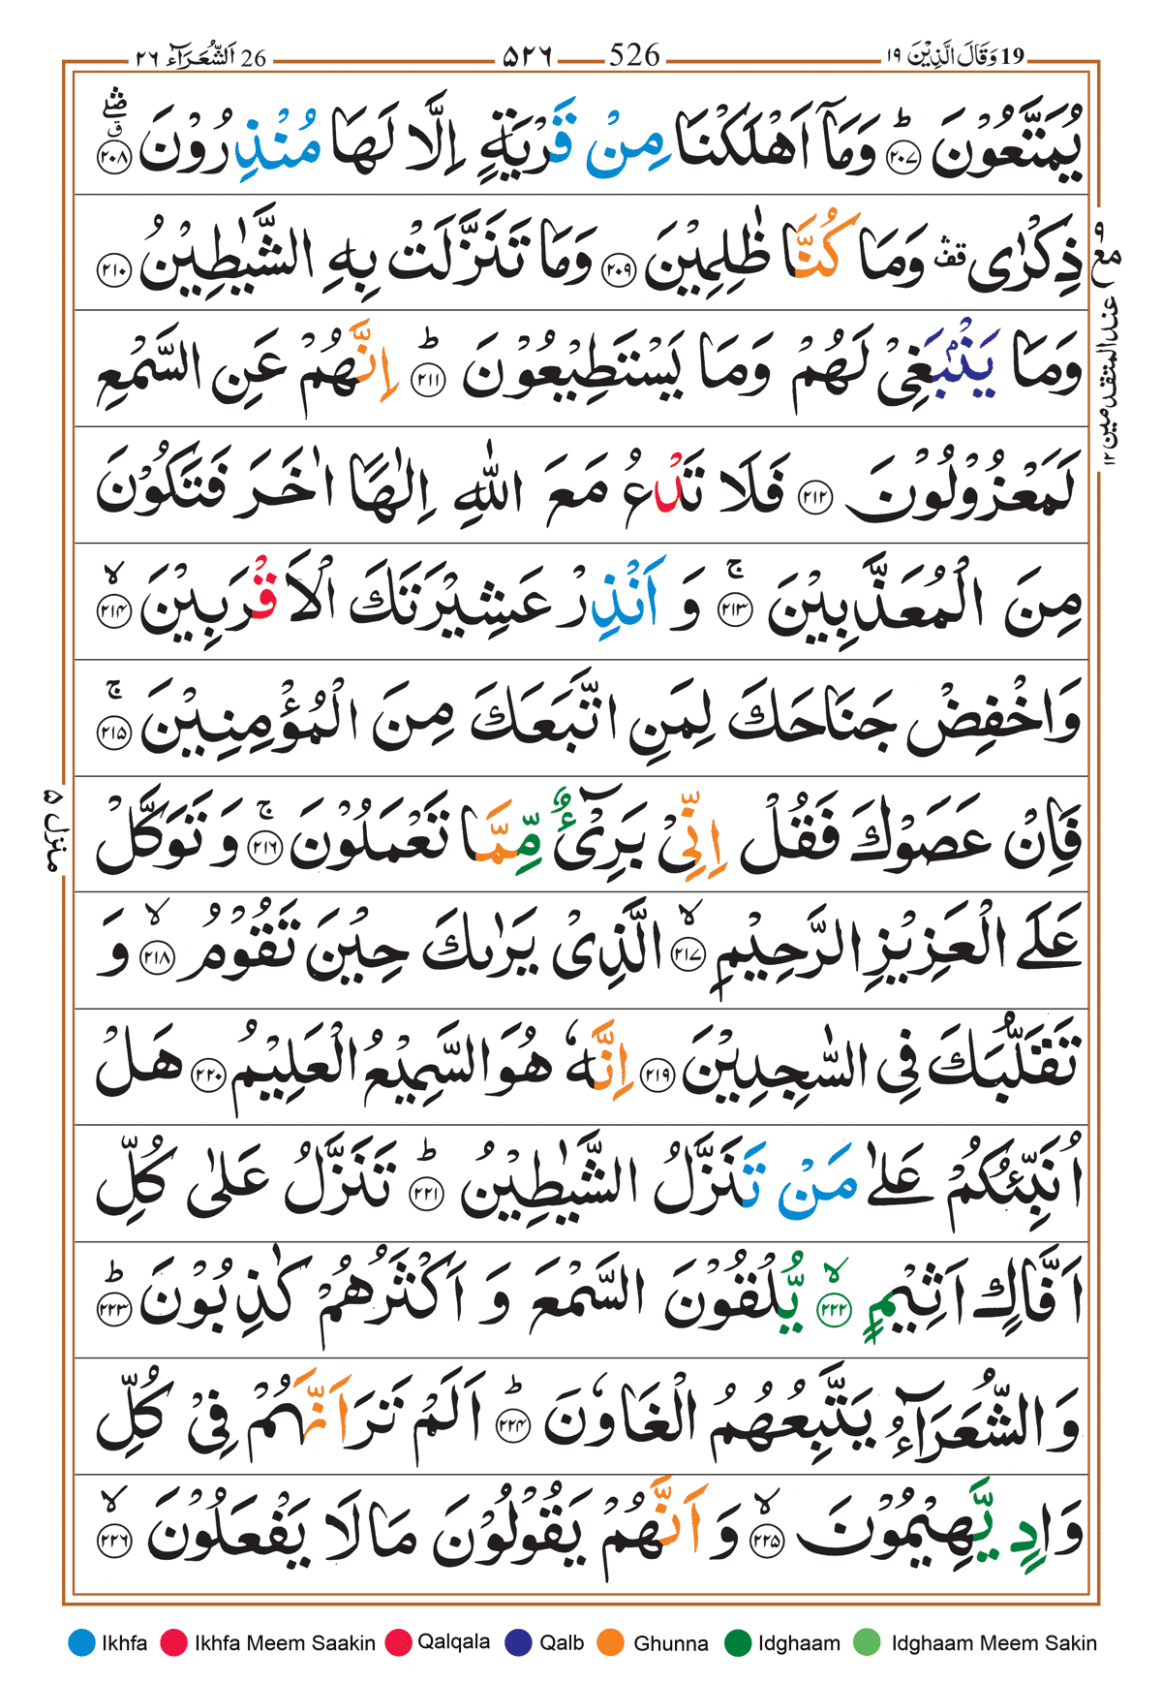 19 وَقَالَ الَّذِيْنَ ١٩
526 ۵۲۶
26 اَلشُّعَرَآء ٢٦
يُمَتَّعُوْنَ ؕ‏ ﴿۲۰۷﴾ وَمَاۤ اَهْلَكْنَا مِنْ قَرْيَةٍ اِلَّا لَهَا مُنْذِرُوْنَ ۛۖ ق ﴿۲۰۸﴾
ذِكْرٰى ۛ قف وَمَا كُنَّا ظٰلِمِيْنَ ﴿۲۰۹﴾ وَمَا تَنَزَّلَتْ بِهِ الشَّيٰطِيْنُ ﴿۲۱۰﴾
وَمَا يَنْۢبَغِىْ لَهُمْ وَمَا يَسْتَطِيْعُوْنَ ؕ ﴿۲۱۱﴾ اِنَّهُمْ عَنِ السَّمْعِ
لَمَعْزُوْلُوْنَ ﴿۲۱۲﴾ فَلَا تَدْعُ مَعَ اللّٰهِ اِلٰهًا اٰخَرَ فَتَكُوْنَ
مِنَ الْمُعَذَّبِيْنَ ۚ ﴿۲۱۳﴾ وَ اَنْذِرْ عَشِيْرَتَكَ الْاَقْرَبِيْنَ ۙ ﴿۲۱۴﴾
وَاخْفِضْ جَنَاحَكَ لِمَنِ اتَّبَعَكَ مِنَ الْمُؤْمِنِيْنَ ۚ ﴿۲۱۵﴾
فَاِنْ عَصَوْكَ فَقُلْ اِنِّىْ بَرِىْٓءٌ مِّمَّا تَعْمَلُوْنَ ۚ ﴿۲۱۶﴾ وَ تَوَكَّلْ
عَلَى الْعَزِيْزِ الرَّحِيْمِ ۙ ﴿۲۱۷﴾ الَّذِىْ يَرٰٮكَ حِيْنَ تَقُوْمُ ۙ ﴿۲۱۸﴾ وَ
تَقَلُّبَكَ فِى السّٰجِدِيْنَ ﴿۲۱۹﴾ اِنَّهٗ هُوَ السَّمِيْعُ الْعَلِيْمُ ﴿۲۲۰﴾ هَلْ
اُنَبِّئُكُمْ عَلٰى مَنْ تَنَزَّلُ الشَّيٰطِيْنُ ؕ ﴿۲۲۱﴾ تَنَزَّلُ عَلٰى كُلِّ
اَفَّاكٍ اَثِيْمٍ ۙ ﴿۲۲۲﴾ يُّلْقُوْنَ السَّمْعَ وَ اَكْثَرُهُمْ كٰذِبُوْنَ ؕ ﴿۲۲۳﴾
وَ الشُّعَرَآءُ يَتَّبِعُهُمُ الْغَاوٗنَ ؕ ﴿۲۲۴﴾ اَلَمْ تَرَ اَنَّهُمْ فِىْ كُلِّ
وَادٍ يَّهِيْمُوْنَ ۙ ﴿۲۲۵﴾ وَ اَنَّهُمْ يَقُوْلُوْنَ مَا لَا يَفْعَلُوْنَ ۙ ﴿۲۲۶﴾
مع
عند المتقدمين ١٢
منزل ۵
Ikhfa Ikhfa Meem Saakin Qalqala Qalb Ghunna Idghaam Idghaam Meem Sakin